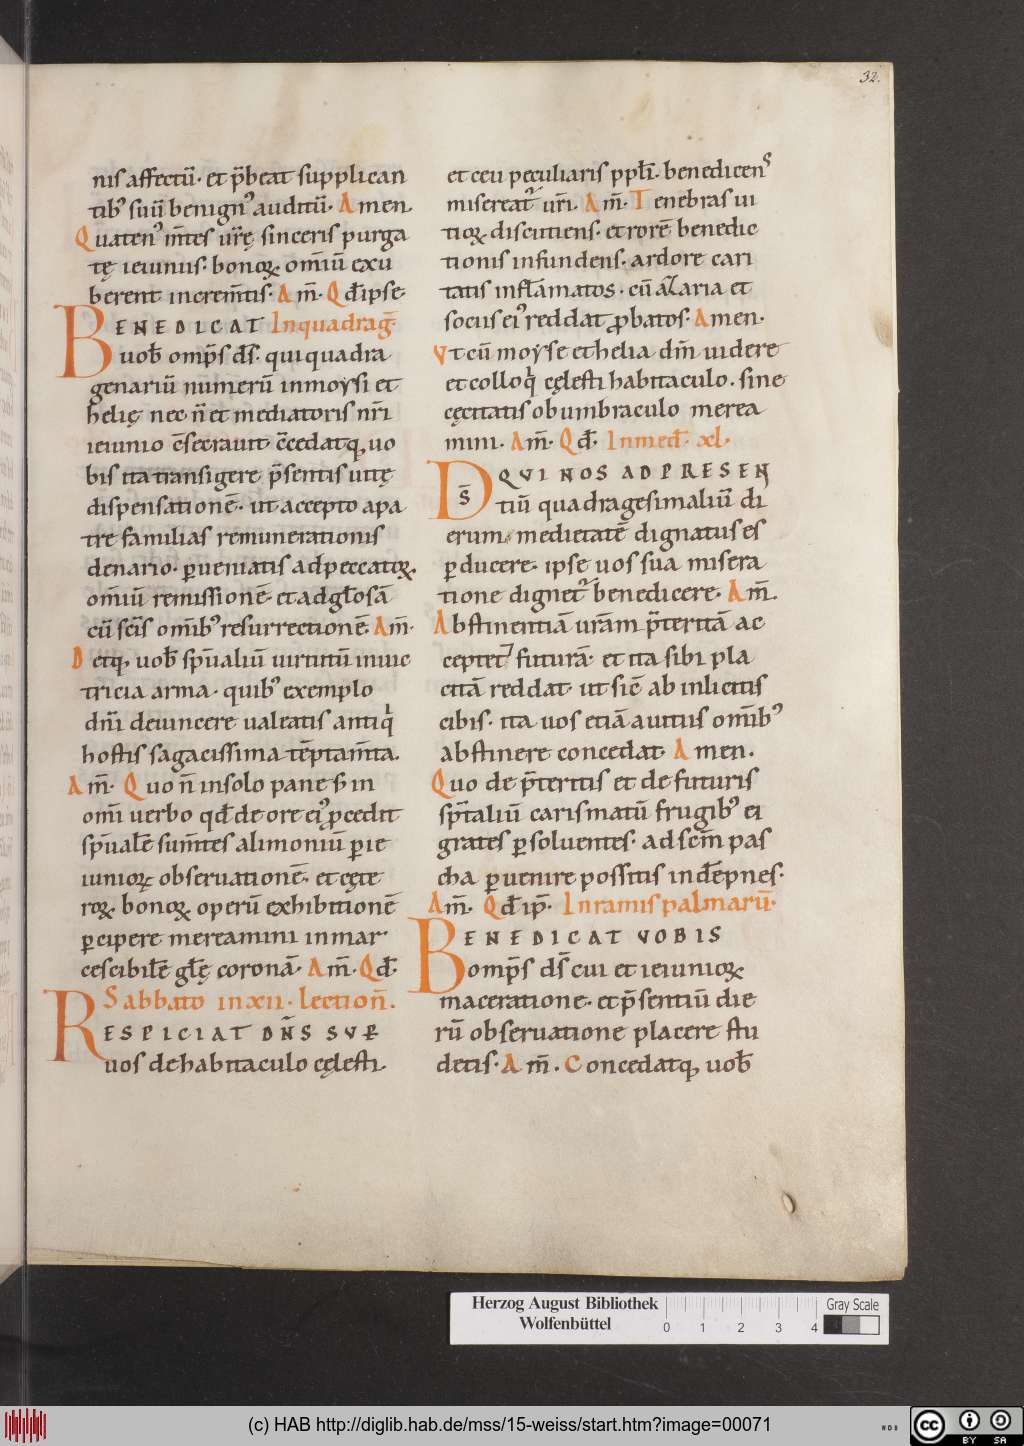 32.
nis affectū. et p̄beat supplican
tib᷒ suū benign᷒ auditū. Amen.
Quaten᷒ m̄tes ur̄ę sinceris purga
tę ieiuniis. bonoꝝ om̄iū exu
berent increm̄tis. Am̄. Qd̄ ipse.
BENEDICAT In quadrag̅.
uob̄ omp̄s ds̄. qui quadra
genariū numerū in moysi et
helię nec n̄ et mediatoris nr̄i
ieiunio c̄secrauit. c̄cedatq, uo
bis ita transigere p̄sentis uitę
dispensationē. ut accepto a pa
tre familias remunerationis
denario. ꝑueniatis ad peccatiꝝ.
om̄iū remissionē. et ad gl̄osā
cū sc̄is om̄ib᷒ resurrectionē. Am̄.
Detq, uob̄ sp̄ualiū uirtutū inuic
tricia arma. quib᷒ exemplo
dn̄i deuincere ualeatis antiq̇
hostis sagacissima tēptam̄ta.
Am̄. Quo n̄ in solo pane s̄ in
om̄i uerbo qd̄ de ore ei᷒ ꝓcedit
sp̄uale̅ sum̄tes alimoniū ꝑ ie
iunioꝝ obseruationē. et cęte
roꝝ bonoꝝ operū exhibitionē
ꝑcipere mereamini inmar
cescibile̅ gl̄ę coronā. Am̄. Qd̄.
Sabbato in xii. lection̄.
RESPICIAT DN̄S SUP
uos de habitaculo cęlesti
et ceu peculiaris ppl̄i. benedicen᷒
misereat᷒ ur̄i. Am̄. Tenebras ui
tioꝝ discutiens. et rorē benedic
tionis infundens. ardore cari
tatis inflāmatos. cū azaria et
sociis ei᷒ reddat ꝓbatos. Amen.
Ut cū moyse et helia dm̄ uidere
et colloq̇ cęlesti habitaculo. sine
cęcitatis obumbraculo merea
mini. Am̄. Qd̄. In med̄. xl.
Ds̄ QUI NOS AD PRESEN
tiū quadragesimaliū di
erum medietatē dignatus es
ꝑducere. ipse uos sua misera
tione dignet᷒ benedicere. Am̄.
Abstinentiā ur̄am p̄teritā ac
ceptet ⁊ futurā. et ita sibi pla
citā reddat. ut sic̄ ab inlicitis
cibis. ita uos etiā a uitiis om̄ib᷒
abstinere concedat. Amen.
Quo de p̄teritis et de futuris
sp̄italiū carismatū frugib᷒ ei
grates ꝑsoluentes. ad sc̄m pas
cha ꝑuenire possitis indēpnes.
Am̄. Qd̄ ip̄. In ramis palmarū.
BENEDICAT VOBIS
omp̄s ds̄ cui et ieiunioꝝ
maceratione. et p̄sentiū die
rū obseruatione placere stu
detis. Am̄. Concedatq, uob̄
Herzog August Bibliothek
Wolfenbüttel
0 1 2 3 4
Gray Scale
(c) HAB http://diglib.hab.de/mss/15-weiss/start.htm?image=00071
cc BY SA